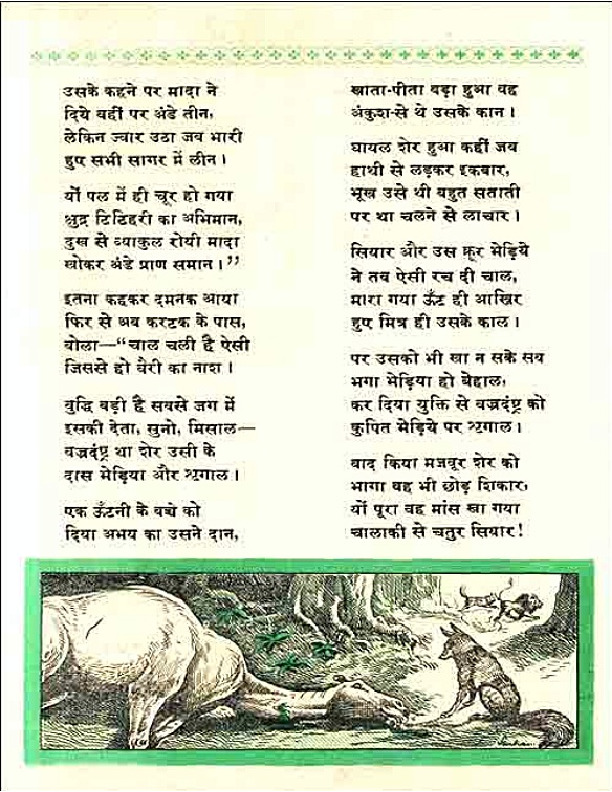 उसके कहने पर मादा ने
दिये वहीं पर अंडे तीन,
लेकिन ज्वार उठा जब भारी
हुए सभी सागर में लीन।
यों पल में ही चूर हो गया
क्षुद्र टिटिहरी का अभिमान,
दुख से व्याकुल रोयी मादा
खोकर अंडे प्राण समान।”
इतना कहकर दमनक आया
फिर से अब करटक के पास,
बोला—“चाल चली है ऐसी
जिससे हो बैरी का नाश।
बुद्धि बड़ी है सबसे जग में
इसकी देता, सुनो, मिसाल—
वज्रदंष्ट्र था शेर उसी के
दास भेड़िया और शृगाल।
एक ऊँटनी के बच्चे को
दिया अभय का उसने दान,
खाता-पीता बढ़ा हुआ वह
अंकुश-से थे उसके कान।
घायल शेर हुआ कहीं जब
हाथी से लड़कर इकबार,
भूख उसे थी बहुत सताती
पर था चलने से लाचार।
सियार और उस क्रूर भेड़िये
ने तब ऐसी रच दी चाल,
मारा गया ऊँट ही आखिर
हुए मित्र ही उसके काल।
पर उसको भी खा न सके सब
भगा भेड़िया हो बेहाल,
कर दिया युक्ति से वज्रदंष्ट्र को
कुपित भेड़िये पर शृगाल।
बाद किया मजबूर शेर को
भागा वह भी छोड़ शिकार,
यों पूरा वह मांस खा गया
चालाकी से चतुर सियार!